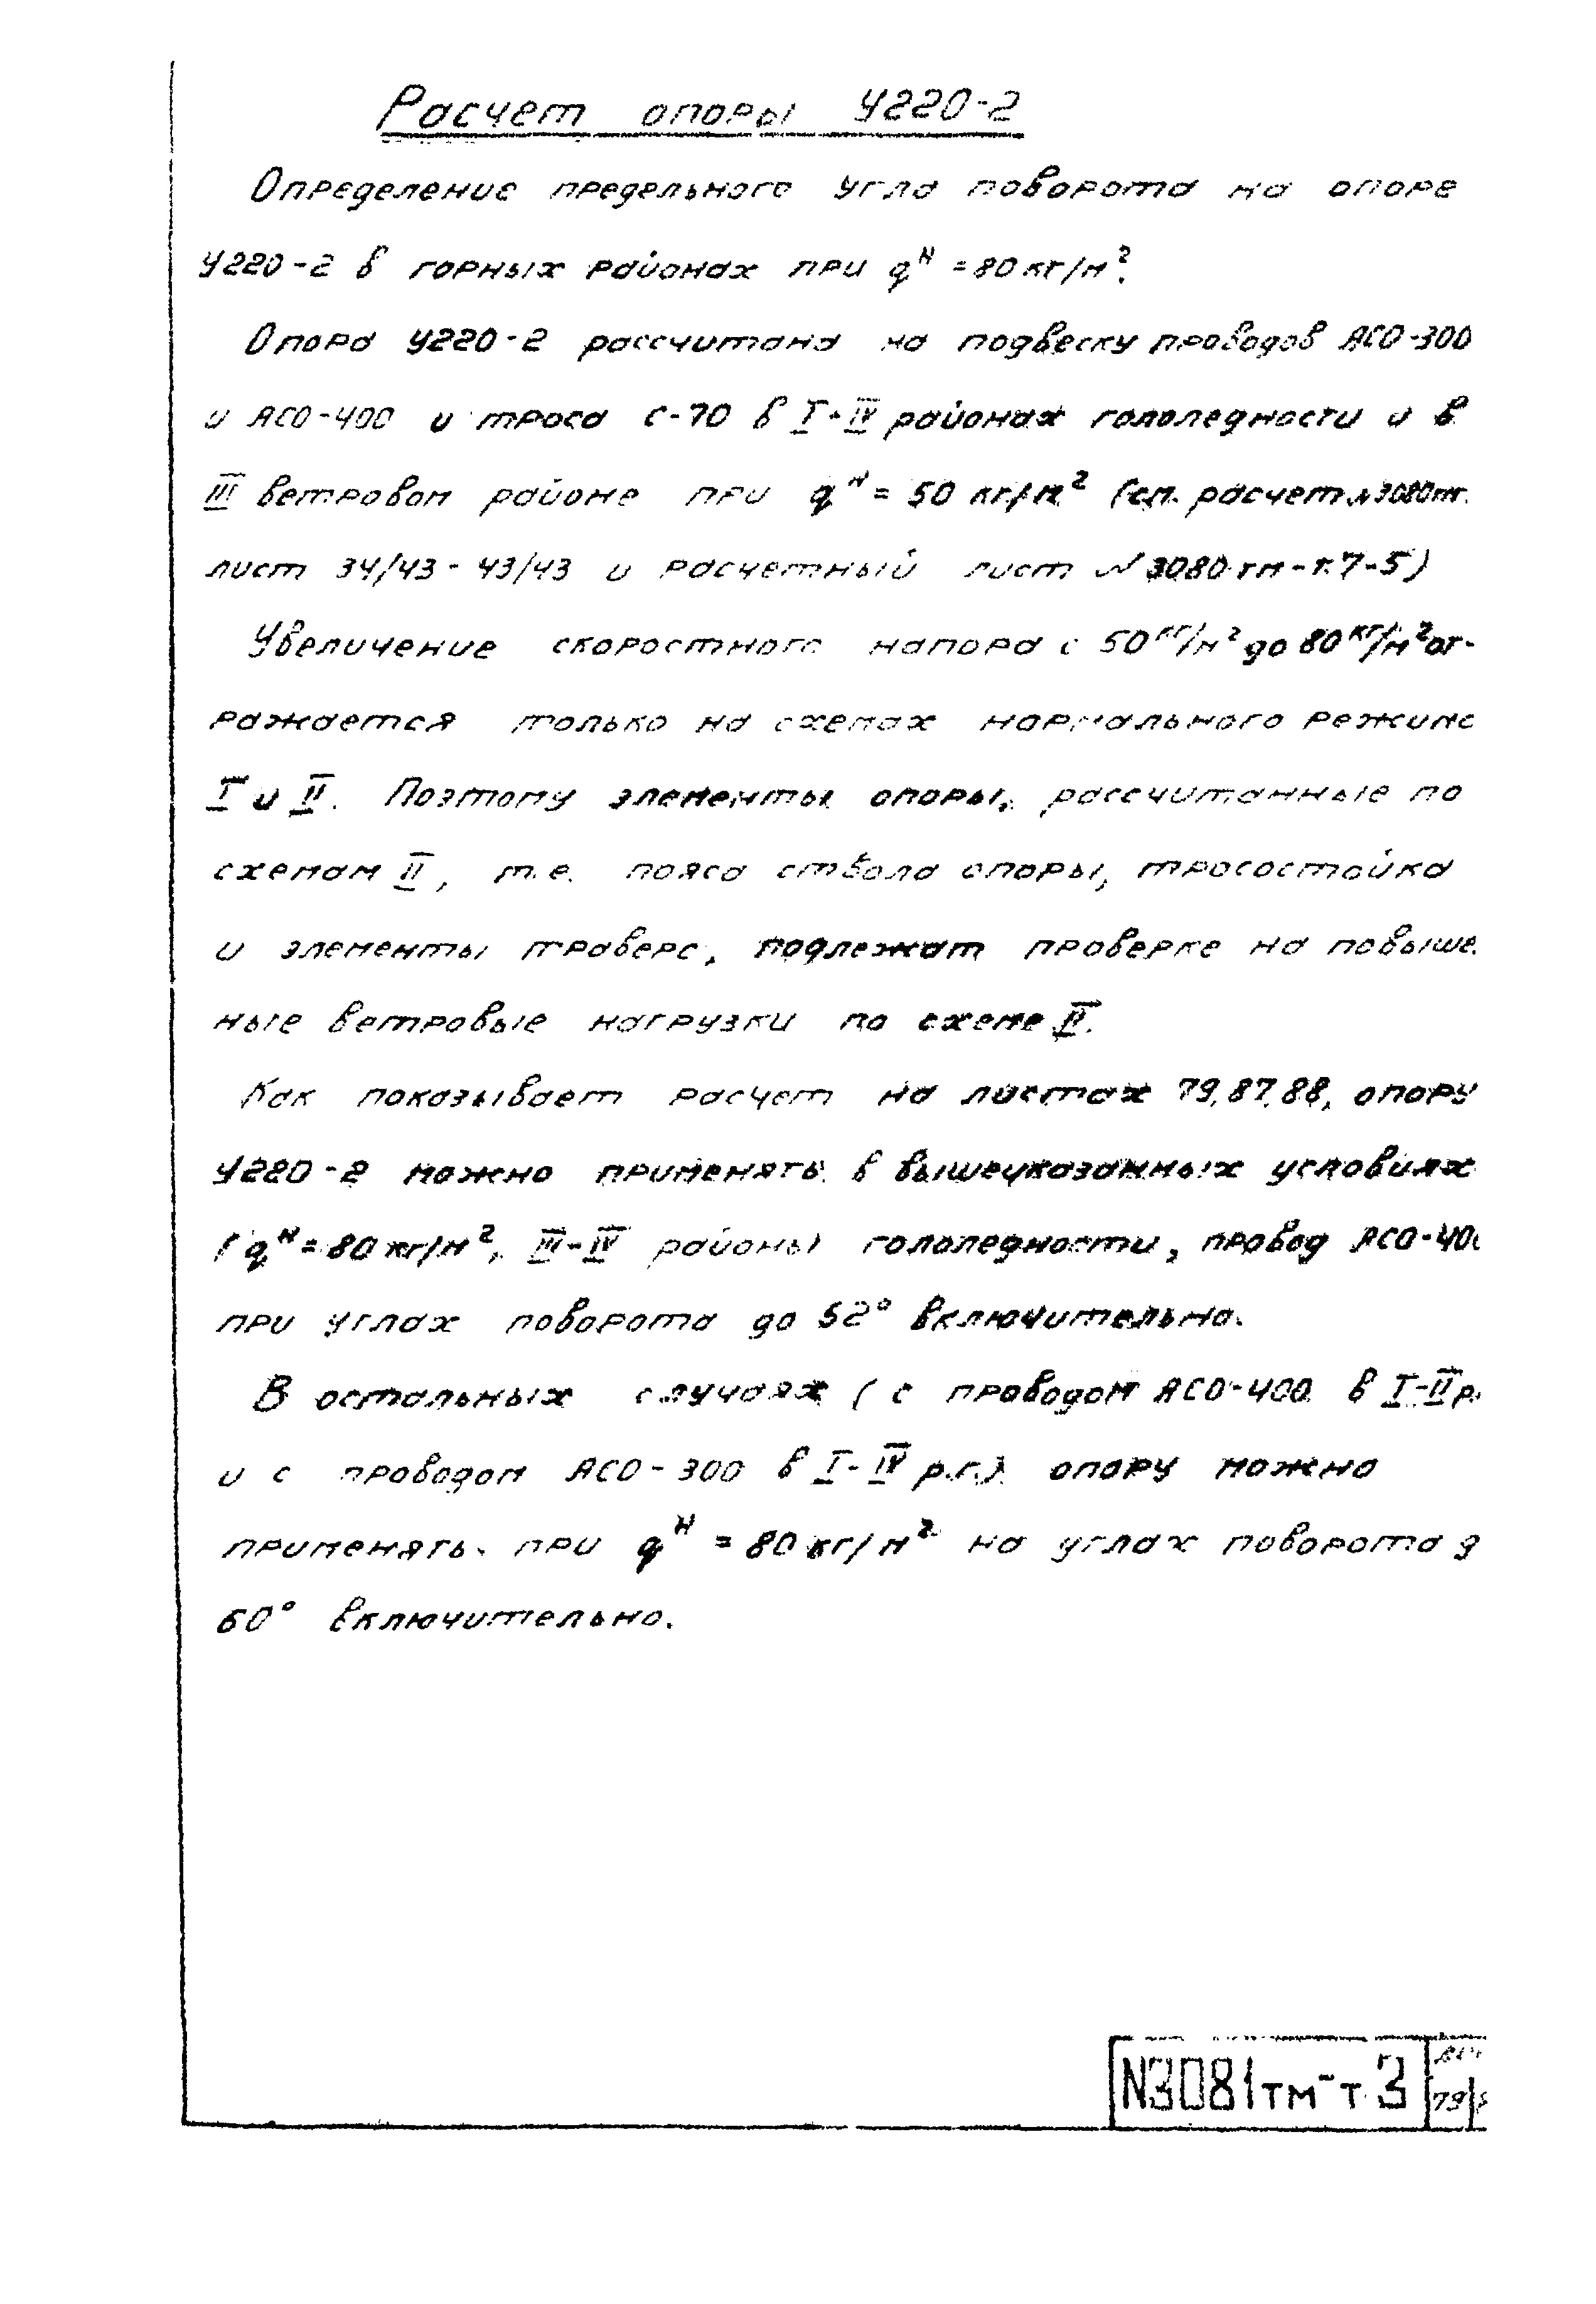 Расчет опоры У220-2
Определение предельного угла поворота на опоре
У220-2 в горных районах при qᴴ = 80 кг/м².
Опора У220-2 рассчитана на подвеску проводов АСО-300
и АСО-400 и троса С-70 в I-IV районах гололедности и в
III ветровом районе при qᴴ = 50 кг/м² (см. расчет № 3080тм.
лист 34/43 - 43/43 и расчетный лист № 3080тм-т.7-5)
Увеличение скоростного напора с 50 кг/м² до 80 кг/м² от-
ражается только на схемах нормального режима
I и II. Поэтому элементы опоры, рассчитанные по
схемам II, т.е. пояса ствола опоры, тросостойка
и элементы траверс, подлежат проверке на повыше
ные ветровые нагрузки по схеме II.
Как показывает расчет на листах 79, 87, 88, опору
У220-2 можно применять в вышеуказанных условиях
(qᴴ = 80 кг/м², III-IV районы гололедности, провод АСО-400
при углах поворота до 52° включительно.
В остальных случаях (с проводом АСО-400 в I-II р.
и с проводом АСО-300 в I-IV р.г.) опору можно
применять при qᴴ = 80 кг/м² на углах поворота д
60° включительно.
N3081тм-т.3
79